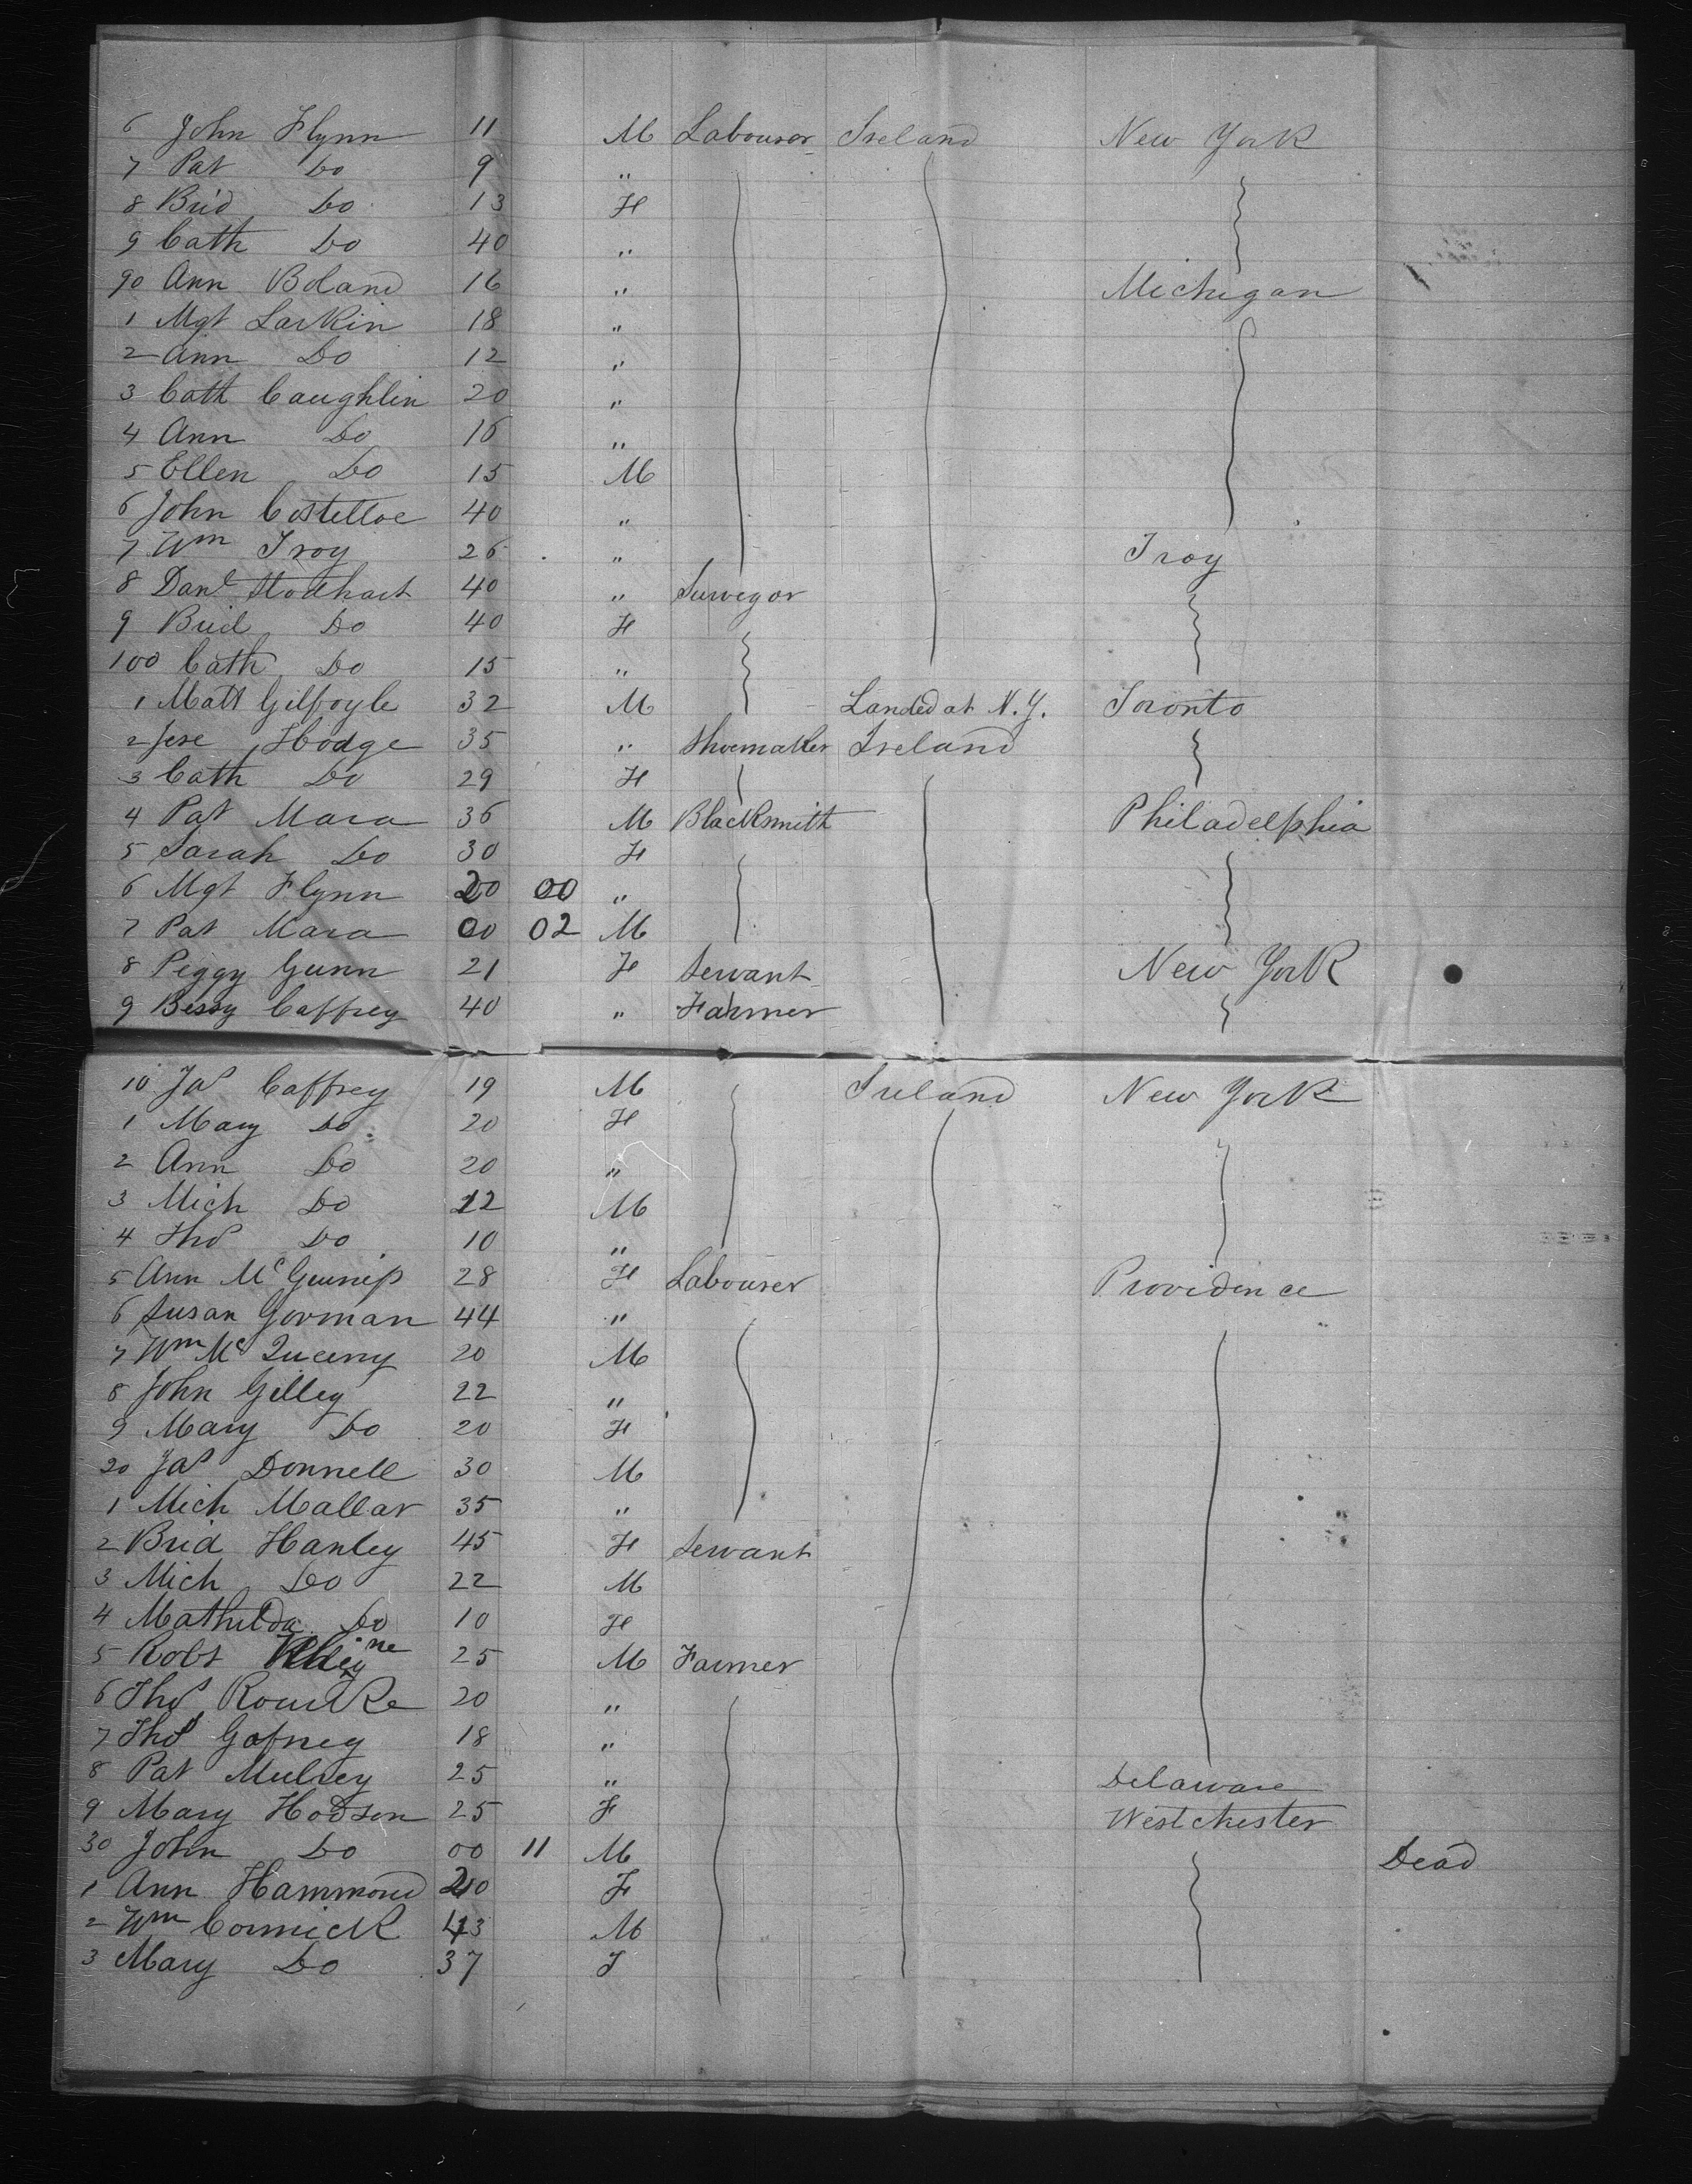 6 John Flynn 11 M Labourer Ireland New York
7 Pat Do 9 "
8 Brid Do 13 F
9 Cath Do 40 "
90 Ann Boland 16 " Michigan
1 Mgt Larkin 18 "
2 Ann Do 12 "
3 Cath Caughlin 20 "
4 Ann Do 16 "
5 Ellen Do 15 M
6 John Costelloe 40 "
7 Wm Troy 26 " Troy
8 Danl 40 "
9 Brid Do 40 F
100 Cath Do 15 "
1 Matt Gilfoyle 32 M Landed at N.Y. Toronto
2 Jese Hodge 35 " Shoemaker Ireland
3 Cath Do 29 F
4 Pat Mara 36 M Blacksmith Philadelphia
5 Sarah Do 30 F
6 Mgt Flynn 20 00 "
7 Pat Mara 00 02 M
8 Peggy Gunn 21 F Servant New York
9 Bessy Caffrey 40 " Farmer
10 Jas Caffrey 19 M Ireland New York
1 Mary Do 20 F
2 Ann Do 20 "
3 Mich Do 12 M
4 Thos Do 10 "
5 Ann Mc 28 F Labourer Providence
6 Susan Gorman 44 "
7 Wm Mc 20 M
8 John Gilley 22 "
9 Mary Do 20 F
20 Jas Donnell 30 M
1 Mich Mallar 35 "
2 Brid Hanley 45 F Servant
3 Mich Do 22 M
4 Mathilda Do 10 F
5 Robt 25 M Farmer
6 Thos Rourke 20 "
7 Thos Gafney 18 "
8 Pat Mulrey 25 " Delaware
9 Mary Hodson 25 F Westchester
30 John Do 00 11 M Dead
1 Ann Hammond 20 F
2 Wm Cormick 43 M
3 Mary Do 37 F